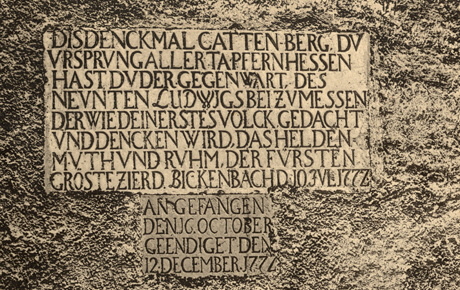 DIS DENCKMAL CATTEN-BERG, DV
VRSPRVNG ALLER TAPFERN HESSEN
HAST DV DER GEGENWART, DES
NEVNTEN LUDWJGS BEIZVMESSEN
DER WIE DEIN ERSTES VOLCK, GEDACHT
VND DENCKEN WIRD, DAS HELDEN
MVTH VND RVHM, DER FVRSTEN
GROSTE ZIERD. BICKENBACH D. JO. JVL. J772
AN GEFANGEN
DEN J6. OCTOBER
GEENDIGET DEN
12. DECEMBER. J772